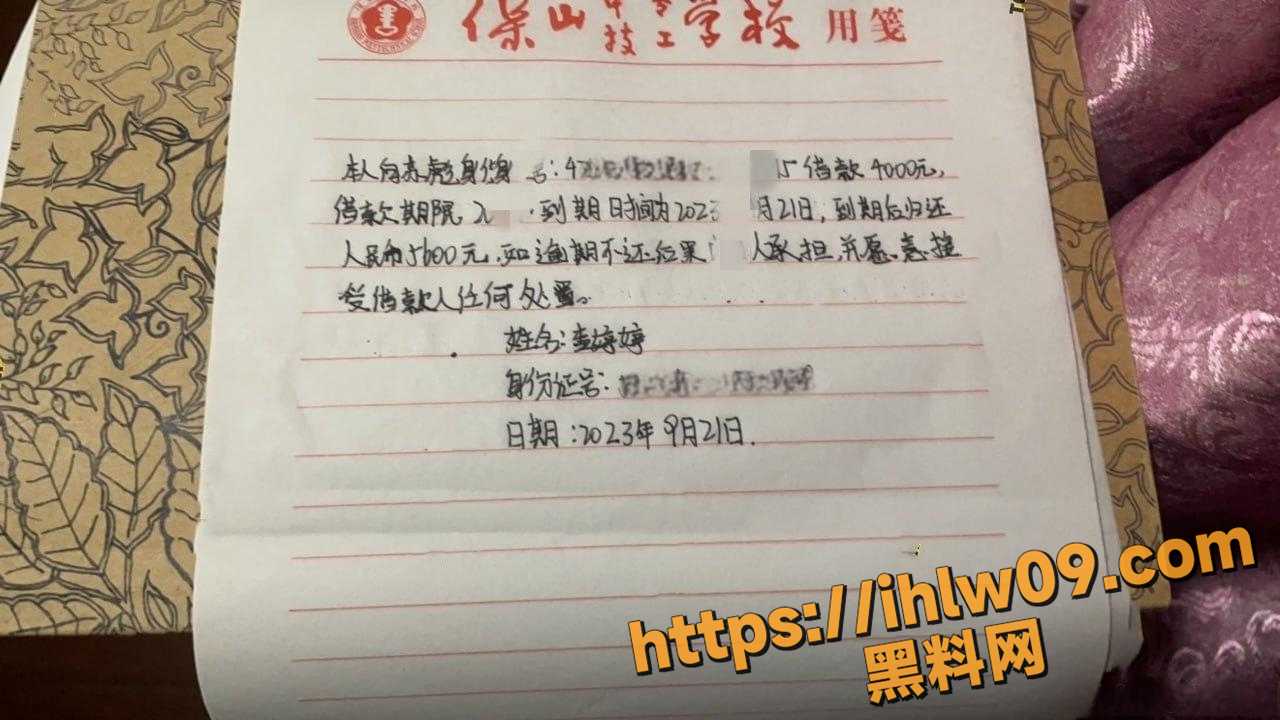 保山中等技工学校 用笺
本人向 身份 号:4 15借款4000元,
借款期限2 .到期日时间为2023 月21日,到期后归还
人民币5600元.如逾期不还后果 人承担,并愿意接
受借款人任何处置。
姓名:查婷婷
身份证号:
日期:2023年9月21日.
https://ihlw09.com
黑料网